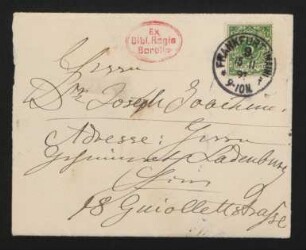 Ex
Bibl. Regia
Berolin.
FRANKFURT
9-10N.
Herrn
Dr. Joseph Joachim.
Adresse: Herrn
Geheimrat Ladenburg
18 Guiollettstraße